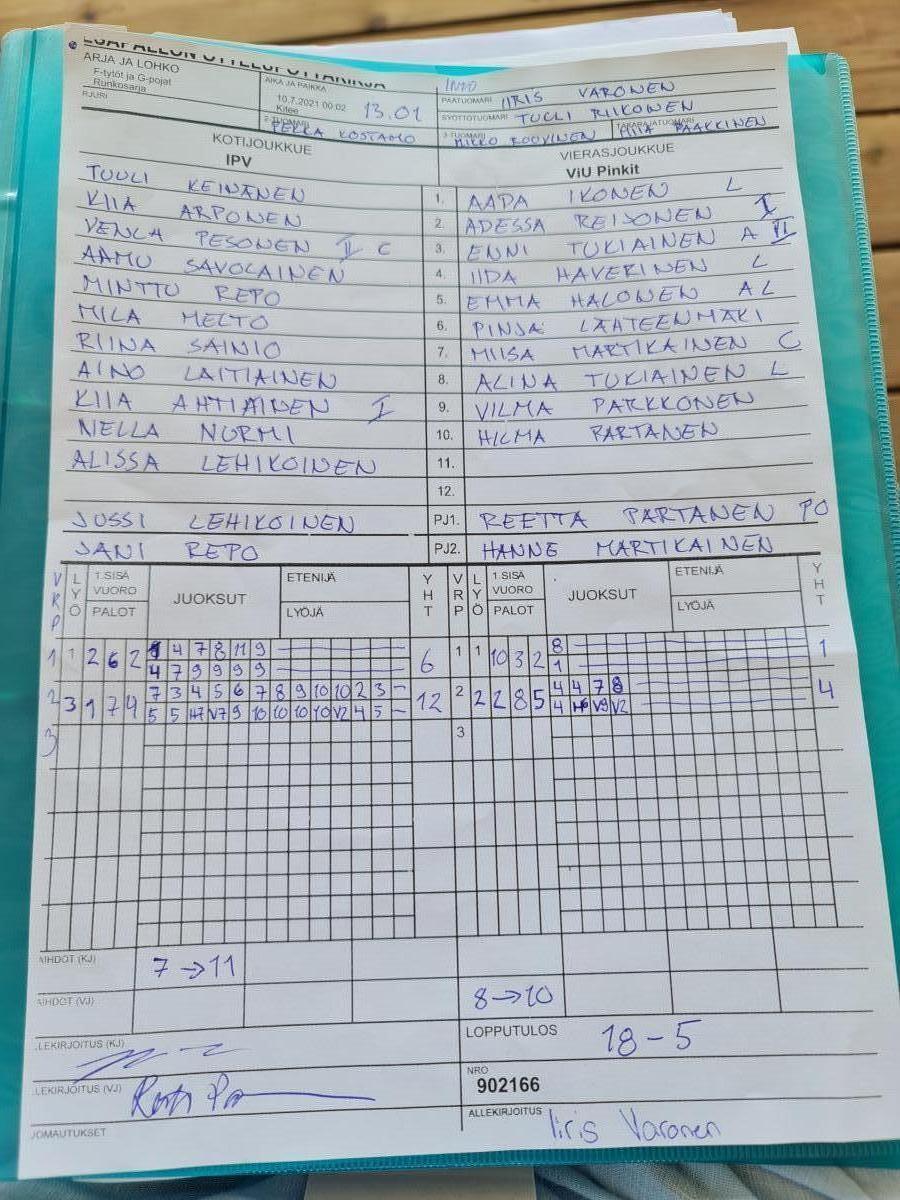 ARJA JA LOHKO
F-tytöt ja G-pojat
Runkosarja
AIKA JA PAIKKA
10.7.2021 00:02 13.01
Kitee
PÄÄTUOMARI IIRIS VARONEN
SYÖTTÖTUOMARI TUULI RIIKONEN
2-TUOMARI PEKKA KOSTAMO
3-TUOMARI MIKKO ROUVINEN
TAKARAJATUOMARI PAAKKINEN
KOTIJOUKKUE
IPV
VIERASJOUKKUE
ViU Pinkit
TUULI KEINÄNEN 1. AADA IKONEN L
KIIA ARPONEN 2. ADESSA REIJONEN I
VENLA PESONEN II C 3. ENNI TUKIAINEN A VI
AAMU SAVOLAINEN 4. IIDA HAVERINEN L
MINTTU REPO 5. EMMA HALONEN A L
MILA MELTO 6. PINJA LÄHTEENMÄKI
RIINA SAINIO 7. MIISA MARTIKAINEN C
AINO LAITIAINEN 8. ALINA TUKIAINEN L
KIIA AHTIAINEN I 9. VILMA PARKKONEN
NELLA NURMI 10. HILMA PARTANEN
ALISSA LEHIKOINEN 11.
12.
JUSSI LEHIKOINEN PJ1. REETTA PARTANEN PO
JANI REPO PJ2. HANNE MARTIKAINEN
VRP LYÖ 1.SISÄ VUORO PALOT JUOKSUT ETENIJÄ LYÖJÄ YHT VRP LYÖ 1.SISÄ VUORO PALOT JUOKSUT ETENIJÄ LYÖJÄ YHT
1 1 2 6 2 4 7 8 11 9 6 1 1 10 3 2 8 1
4 7 9 9 9 9 1
2 3 1 7 4 7 3 4 5 6 7 8 9 10 10 2 3 – 12 2 2 2 8 5 4 4 7 8 4
5 5 H7 V7 9 10 10 10 10 V2 4 5 – 4 H6 V9 V2
3 3
7 → 11
8 → 10
LOPPUTULOS 18 – 5
NRO
902166
ALLEKIRJOITUS Iiris Varonen